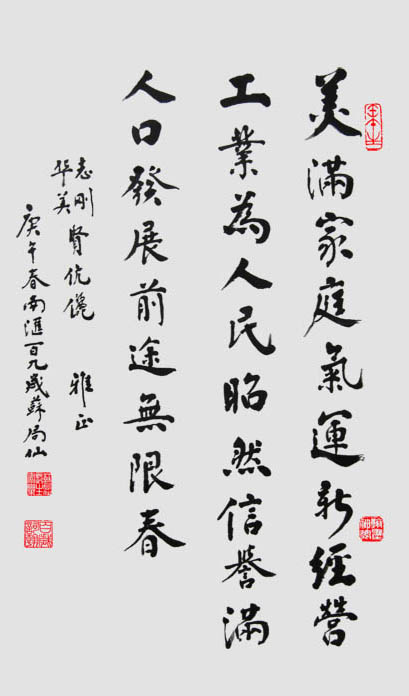 美滿家庭氣運新經營
工業為人民昭然信譽滿
人口發展前途無限春
志刚
华美
贤伉儷 雅正
庚午春南滙百九歲蘇局仙